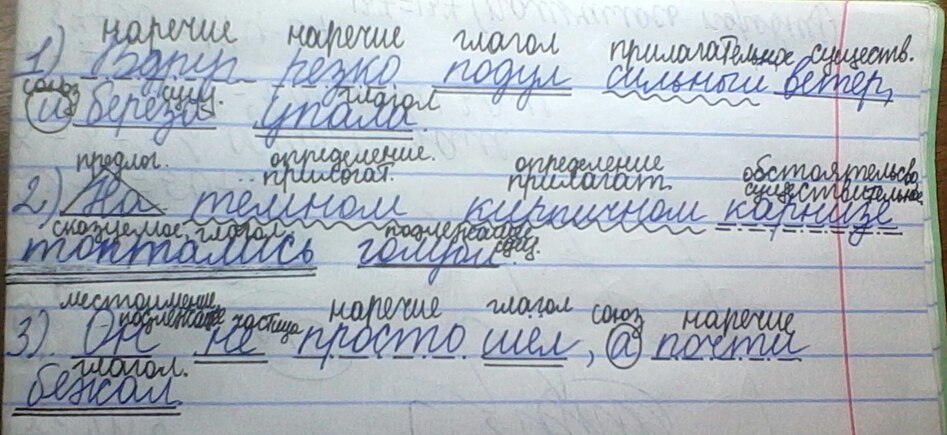 наречие наречие глагол прилагательное существ.
1) Вдруг резко подул сильный ветер,
союз сущ. глагол
и береза упала.
предлог. определение. определение обстоятельство
прилогат. прилагат. существительное
2) На темном кирпичном карнизе
сказуемое глагол. подлежащее
сущ.
топтались голуби.
местоимение наречие глагол союз наречие
подлежащее частица
3) Он не просто шел, а почти
глагол.
бежал.